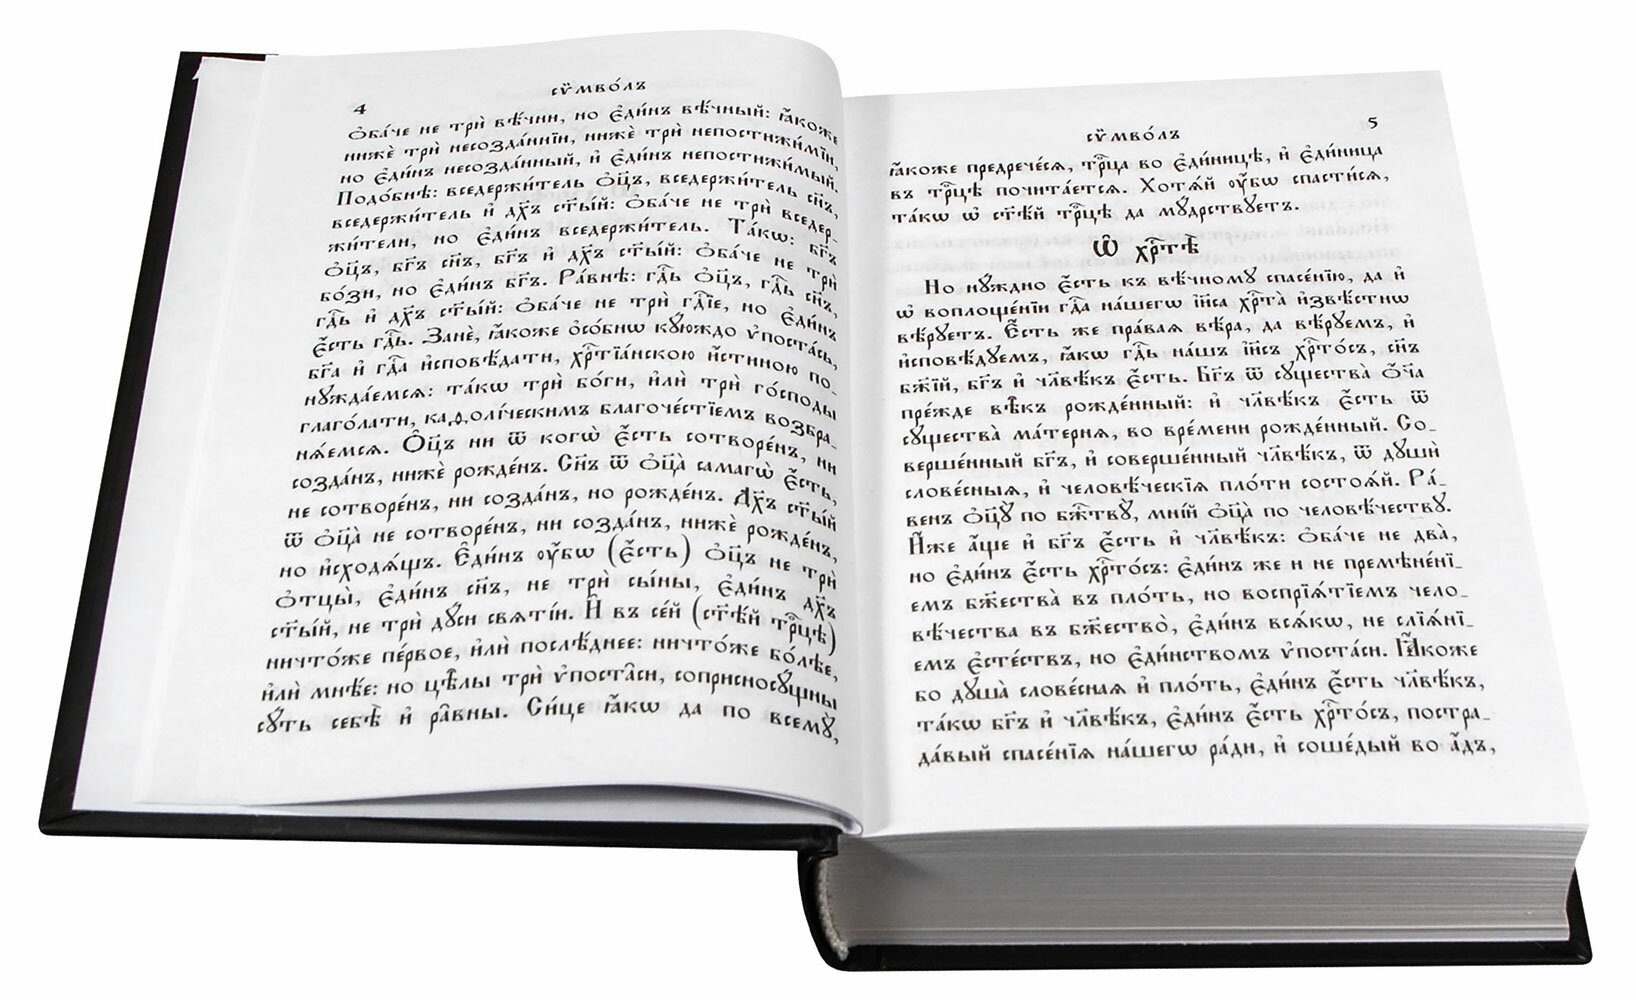 4
сѷмво́лъ
Ѻ҆ба́че не трѝ вѣ́чни, но є҆ди́нъ вѣ́чный: ꙗ҆́коже
нижѐ трѝ несозда́ннїи, нижѐ трѝ непостижи́мїи,
но є҆ди́нъ несозда́нный, и҆ є҆ди́нъ непостижи́мый.
Подо́бнѣ: вседержи́тель ѻ҆ц҃ъ, вседержи́тель сн҃ъ,
вседержи́тель и҆ дх҃ъ ст҃ы́й: ѻ҆ба́че не трѝ вседер_
жи́тели, но є҆ди́нъ вседержи́тель. Та́кѡ: бг҃ъ
ѻ҆ц҃ъ, бг҃ъ сн҃ъ, бг҃ъ и҆ дх҃ъ ст҃ы́й: ѻ҆ба́че не трѝ
бо́зи, но є҆ди́нъ бг҃ъ. Ра́внѣ: гдⷭ҇ь ѻ҆ц҃ъ, гдⷭ҇ь сн҃ъ,
гдⷭ҇ь и҆ дх҃ъ ст҃ы́й: ѻ҆ба́че не трѝ гдⷭ҇їе, но є҆ди́нъ
є҆́сть гдⷭ҇ь. Занѐ, ꙗ҆́коже ѻ҆со́бнѡ кꙋ́юждо ѵ҆поста́сь,
бг҃а и҆ гдⷭ҇а и҆сповѣ́дати, хрⷭ҇тїа́нскою и҆́стиною по_
нꙋжда́емся: та́кѡ трѝ бо́ги, и҆лѝ трѝ го́споды
глаго́лати, каѳоли́ческимъ благоче́стїемъ возбра_
нѧ́емся. Ѻ҆ц҃ъ ни ѿ когѡ̀ є҆́сть сотворе́нъ, ни
созда́нъ, нижѐ рожде́нъ. Сн҃ъ ѿ ѻ҆ц҃а̀ самагѡ̀ є҆́сть,
не сотворе́нъ, ни созда́нъ, но рожде́нъ. Дх҃ъ ст҃ы́й
ѿ ѻ҆ц҃а̀ не сотворе́нъ, ни созда́нъ, нижѐ рожде́нъ,
но и҆сходѧ́щъ. Є҆ди́нъ ᲂу҆́бѡ (є҆́сть) ѻ҆ц҃ъ не трѝ
ѻ҆тцы̀, є҆ди́нъ сн҃ъ, не трѝ сы́ны, є҆ди́нъ дх҃ъ
ст҃ы́й, не трѝ дꙋ́си свѧті́и. И҆ въ се́й (ст҃ѣ́й трⷪ҇цѣ)
ничто́же пе́рвое, и҆лѝ послѣ́днее: ничто́же бо́лѣе,
и҆лѝ мнѣ́е: но цѣ̑лы трѝ ѵ҆поста̑си, соприсносꙋ́щны
сꙋ́ть себѣ̀ и҆ ра̑вны. Си́це ꙗ҆́кѡ да по всемꙋ̀,
5
сѷмво́лъ
ꙗ҆́коже предрече́ся, трⷪ҇ца во є҆ди́ницѣ, и҆ є҆ди́ница
въ трⷪ҇цѣ почита́ется. Хотѧ́й ᲂу҆́бѡ спасти́ся,
та́кѡ ѡ҆ ст҃ѣ́й трⷪ҇цѣ да мꙋ́дрствꙋетъ.
Ѽ хрⷭ҇тѣ̀
Но нꙋ́ждно є҆́сть къ вѣ́чномꙋ спасе́нїю, да и҆
ѡ҆ воплоще́нїи гдⷭ҇а на́шегѡ і҆и҃са хрⷭ҇та̀ и҆звѣ́стнѡ
вѣ́рꙋетъ. Є҆́сть же пра́вая вѣ́ра, да вѣ́рꙋемъ, и҆
и҆сповѣ́дꙋемъ, ꙗ҆́кѡ гдⷭ҇ь на́шъ і҆и҃съ хрⷭ҇то́съ, сн҃ъ
бж҃їй, бг҃ъ и҆ чл҃вѣ́къ є҆́сть. Бг҃ъ ѿ сꙋщества̀ ѻ҆́ч҃а
пре́жде вѣ̑къ рожде́нный: и҆ чл҃вѣ́къ є҆́сть ѿ
сꙋщества̀ ма́терня, во вре́мени рожде́нный. Со_
верше́нный бг҃ъ, и҆ соверше́нный чл҃вѣ́къ, ѿ дꙋшѝ
слове́сныя, и҆ человѣ́ческїя пло́ти состоѧ́й. Ра́_
венъ ѻ҆ц҃ꙋ̀ по бжⷭ҇твꙋ̀, мні́й ѻ҆ц҃а̀ по человѣ́чествꙋ.
И҆́же а҆́ще и҆ бг҃ъ є҆́сть и҆ чл҃вѣ́къ: ѻ҆ба́че не два̀,
но є҆ди́нъ є҆́сть хрⷭ҇то́съ: є҆ди́нъ же и не премѣне́нї_
емъ бж҃ества̀ въ пло́ть, но воспрїѧ́тїемъ чело_
вѣ́чества въ бж҃ество̀, є҆ди́нъ всѧ́кѡ, не слїѧ́нї_
емъ є҆сте́ствъ, но є҆ди́нствомъ ѵ҆поста́си. Ꙗ҆́коже
бо дꙋша̀ слове́сная и҆ пло́ть, є҆ди́нъ є҆́сть чл҃вѣ́къ,
та́кѡ бг҃ъ и҆ чл҃вѣ́къ, є҆ди́нъ є҆́сть хрⷭ҇то́съ, постра_
да́вый спасе́нїя на́шегѡ ра́ди, и҆ соше́дый во а҆́дъ,